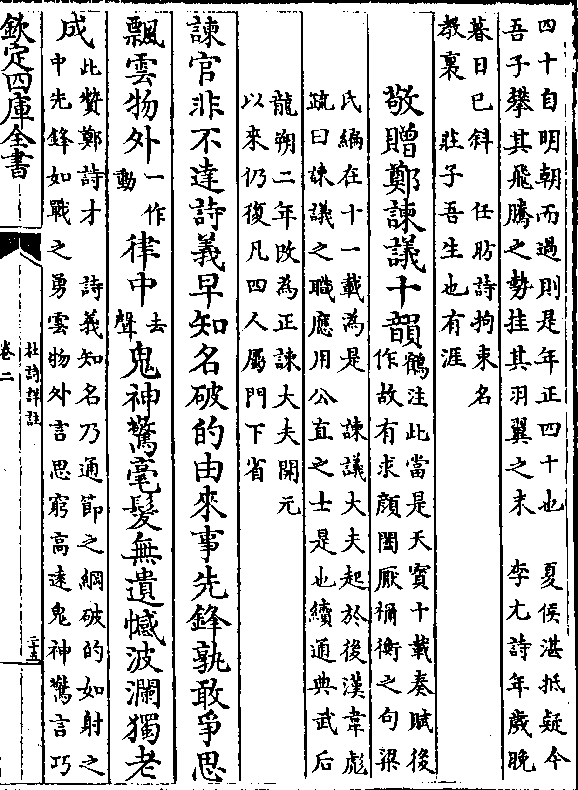 四十自明朝而過則是年正四十也　夏侯湛抵疑今
吾子攀其飛騰之勢挂其羽翼之末　李尤詩年歲晚
暮日已斜　任昉詩拘束名
教裏　莊子吾生也有涯
敬贈鄭諫議十韻鶴注此當是天寶十載奏賦後
作故有求顏闔厭禰衡之句梁
氏編在十一載為是　諫議大夫起於後漢韋彪
疏曰諫議之職應用公直之士是也續通典武后
龍朔二年改為正諫大夫開元
以來仍復凡四人屬門下省
諫官非不達詩義早知名破的由來事先鋒孰敢爭思
飄雲物外一作動律中去聲鬼神驚毫髮無遺憾波瀾獨老
成此贊鄭詩才　詩義知名乃通節之綱破的如射之
中先鋒如戰之勇雲物外言思窮高遠鬼神驚言巧
欽定四庫全書
杜詩詳註
卷二
二十五